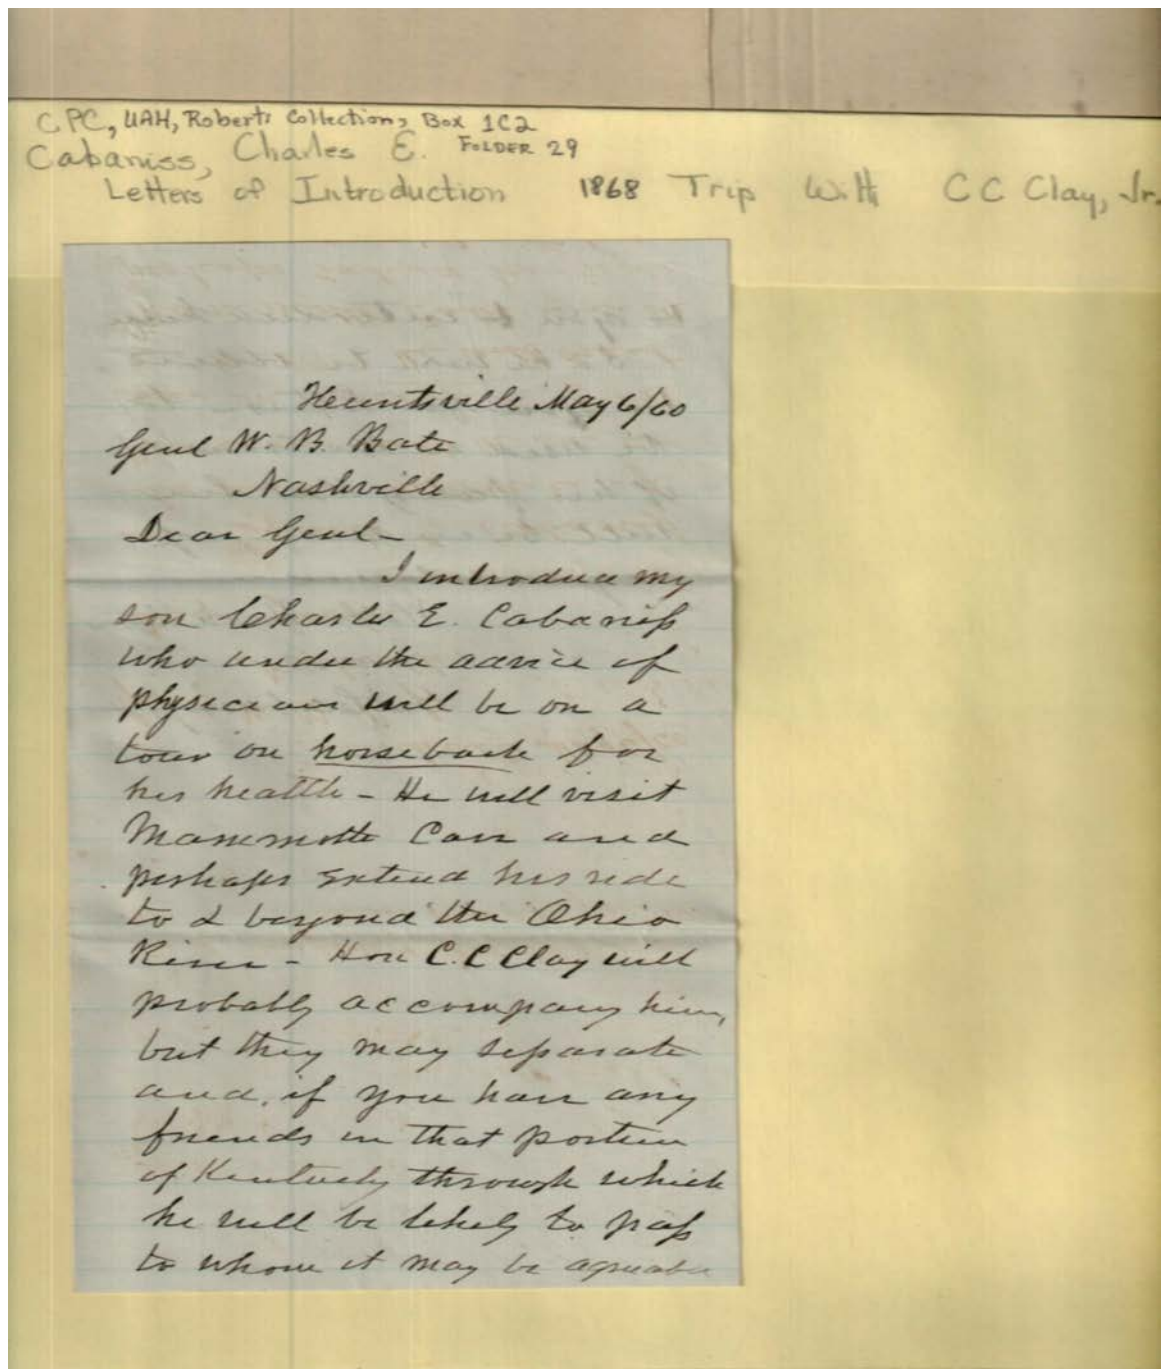 CPC, UAH, Roberts Collection, Box 1C2
FOLDER 29
Cabaniss, Charles E.
Letters of Introduction 1868 Trip With C C Clay, Jr.
Huntsville May 6/60
Genl W. B. Bate
Nashville
Dear Genl-
I introduce my
son Charles E. Cabaniss
who under the advice of
physicians will be on a
tour on horseback for
his health - He will visit
Mammoth Cave and
perhaps extend his ride
to & beyond the Ohio
River - Hon C. C Clay will
probably accompany him,
but they may separate
and, if you have any
friends in that portion
of Kentucky through which
he will be likely to pass
to whom it may be agreeable